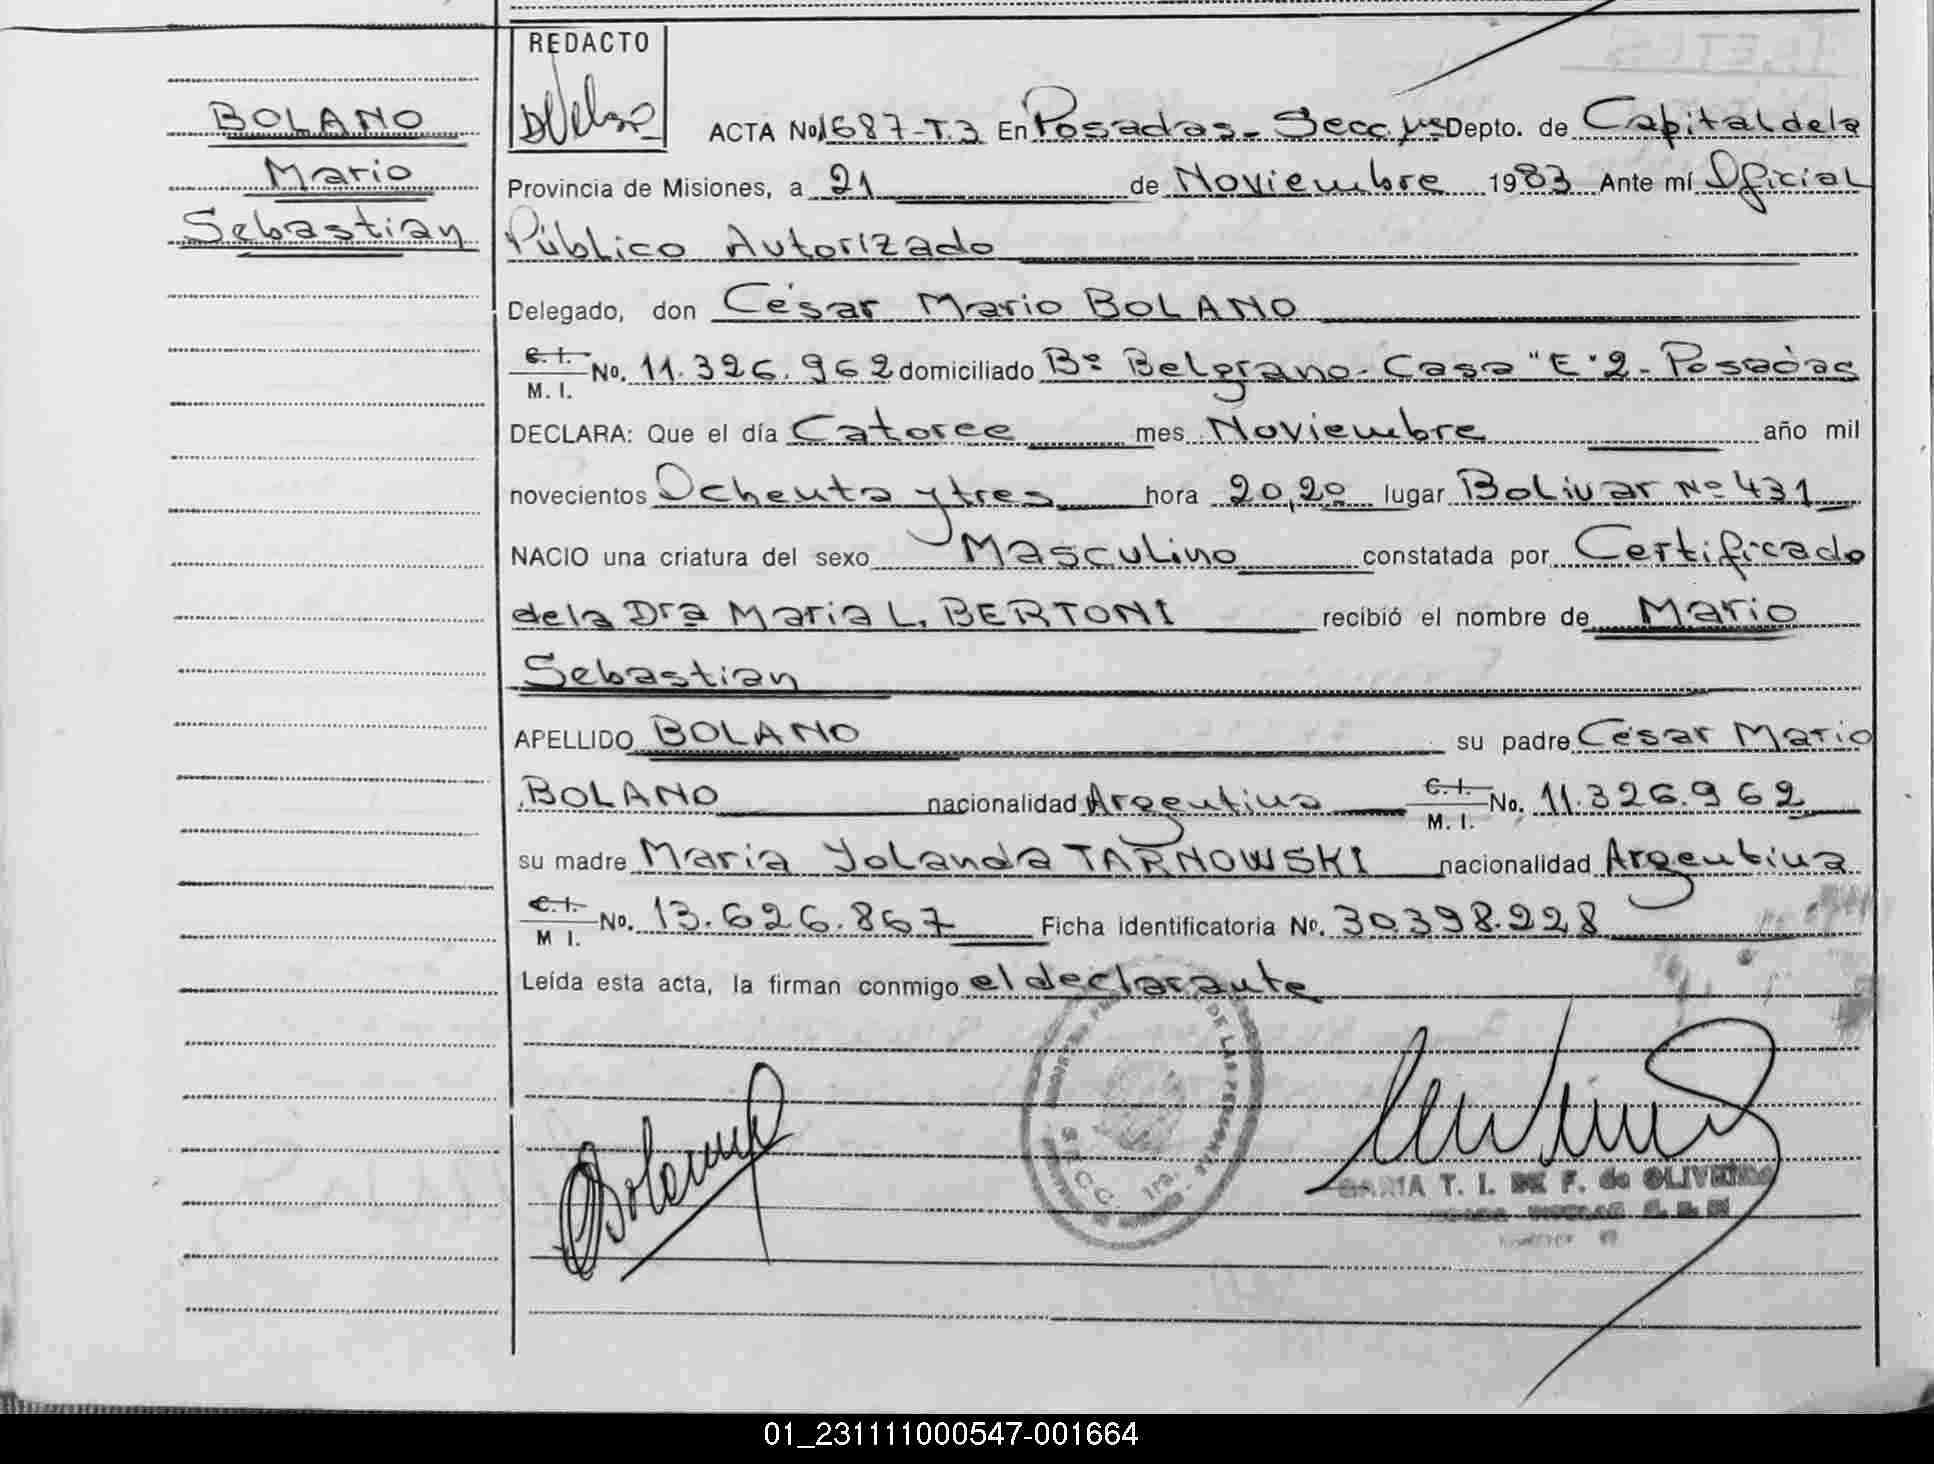 BOLANO
Mario
Sebastian
REDACTO
ACTA No 1687-T.3 En Posadas - Secc. 1ra Depto. de Capital de la
Provincia de Misiones, a 21 de Noviembre 1983 Ante mí Oficial
Público Autorizado
Delegado, don César Mario BOLANO
C. I. No. 11.326.962 domiciliado Bº Belgrano - Casa "E" 2 - Posadas
M. I.
DECLARA: Que el día Catorce mes Noviembre año mil
novecientos Ochenta y tres hora 20,20 lugar Bolivar Nº 431
NACIO una criatura del sexo Masculino constatada por Certificado
de la Dra Maria L. BERTONI recibió el nombre de Mario
Sebastian
APELLIDO BOLANO su padre César Mario
BOLANO nacionalidad Argentina C. I. No. 11.326.962
M. I.
su madre Maria Yolanda TARNOWSKI nacionalidad Argentina
C. I. No. 13.626.867 Ficha identificatoria No. 30.398.228
M I.
Leída esta acta, la firman conmigo el declarante
DE LAS PERSONAS
SECC. 1ra.
Bolano
MARIA T. I. DE F. de OLIVEIRA
01_231111000547-001664